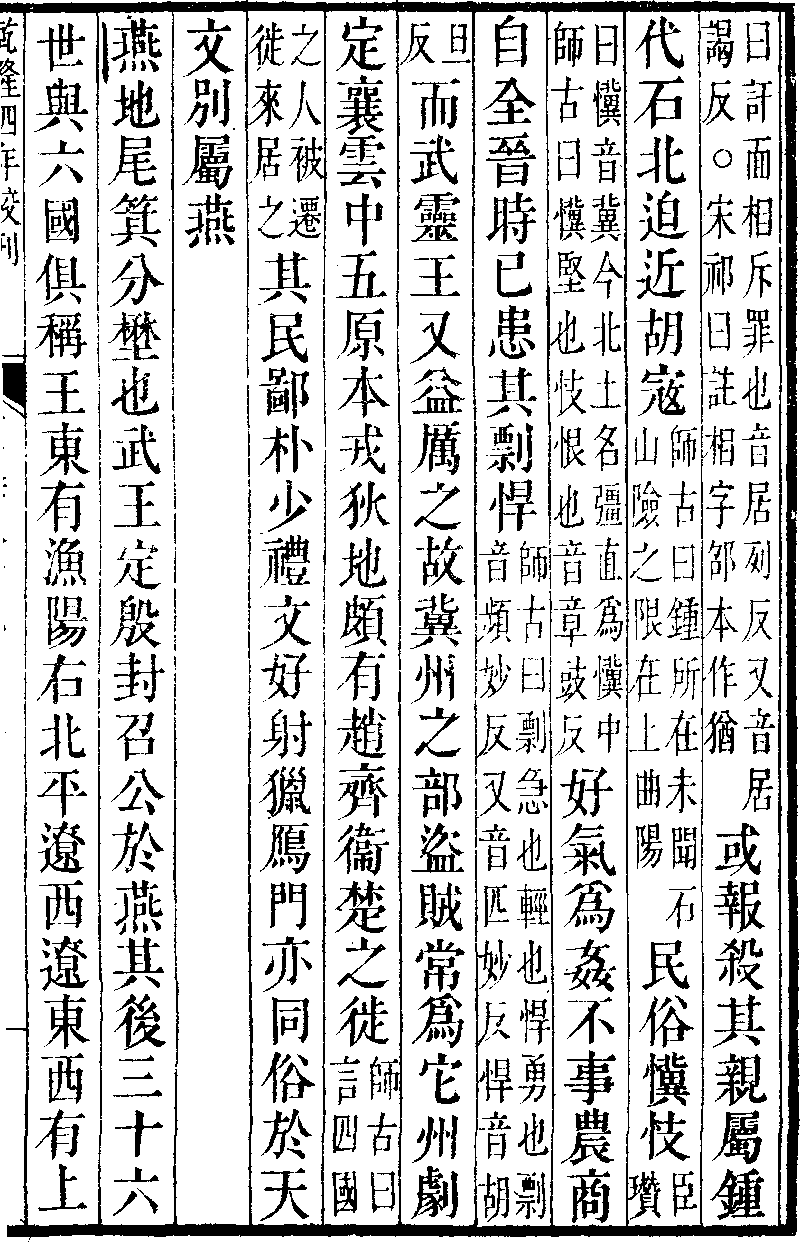 曰訐面相斥罪也音居列反又音居謁反○宋祁曰註相字邵本作猶或報殺其親屬鍾
代石北迫近胡寇師古曰鍾所在未聞石山險之限在上曲陽民俗懻忮臣瓚
曰懻音冀今北土名彊直爲懻中師古曰懻堅也忮恨也音章豉反好氣爲姦不事農商
自全晉時已患其剽悍師古曰剽急也輕也悍勇也剽音頻妙反又音匹妙反悍音胡
旦反而武靈王又益厲之故冀州之部盜賊常爲它州劇
定襄雲中五原本戎狄地頗有趙齊衞楚之徙師古曰言四國
之人被遷徙來居之其民鄙朴少禮文好射獵鴈門亦同俗於天
文別屬燕
燕地尾箕分壄也武王定殷封召公於燕其後三十六
世與六國俱稱王東有漁陽右北平遼西遼東西有上
乾隆四年校刊